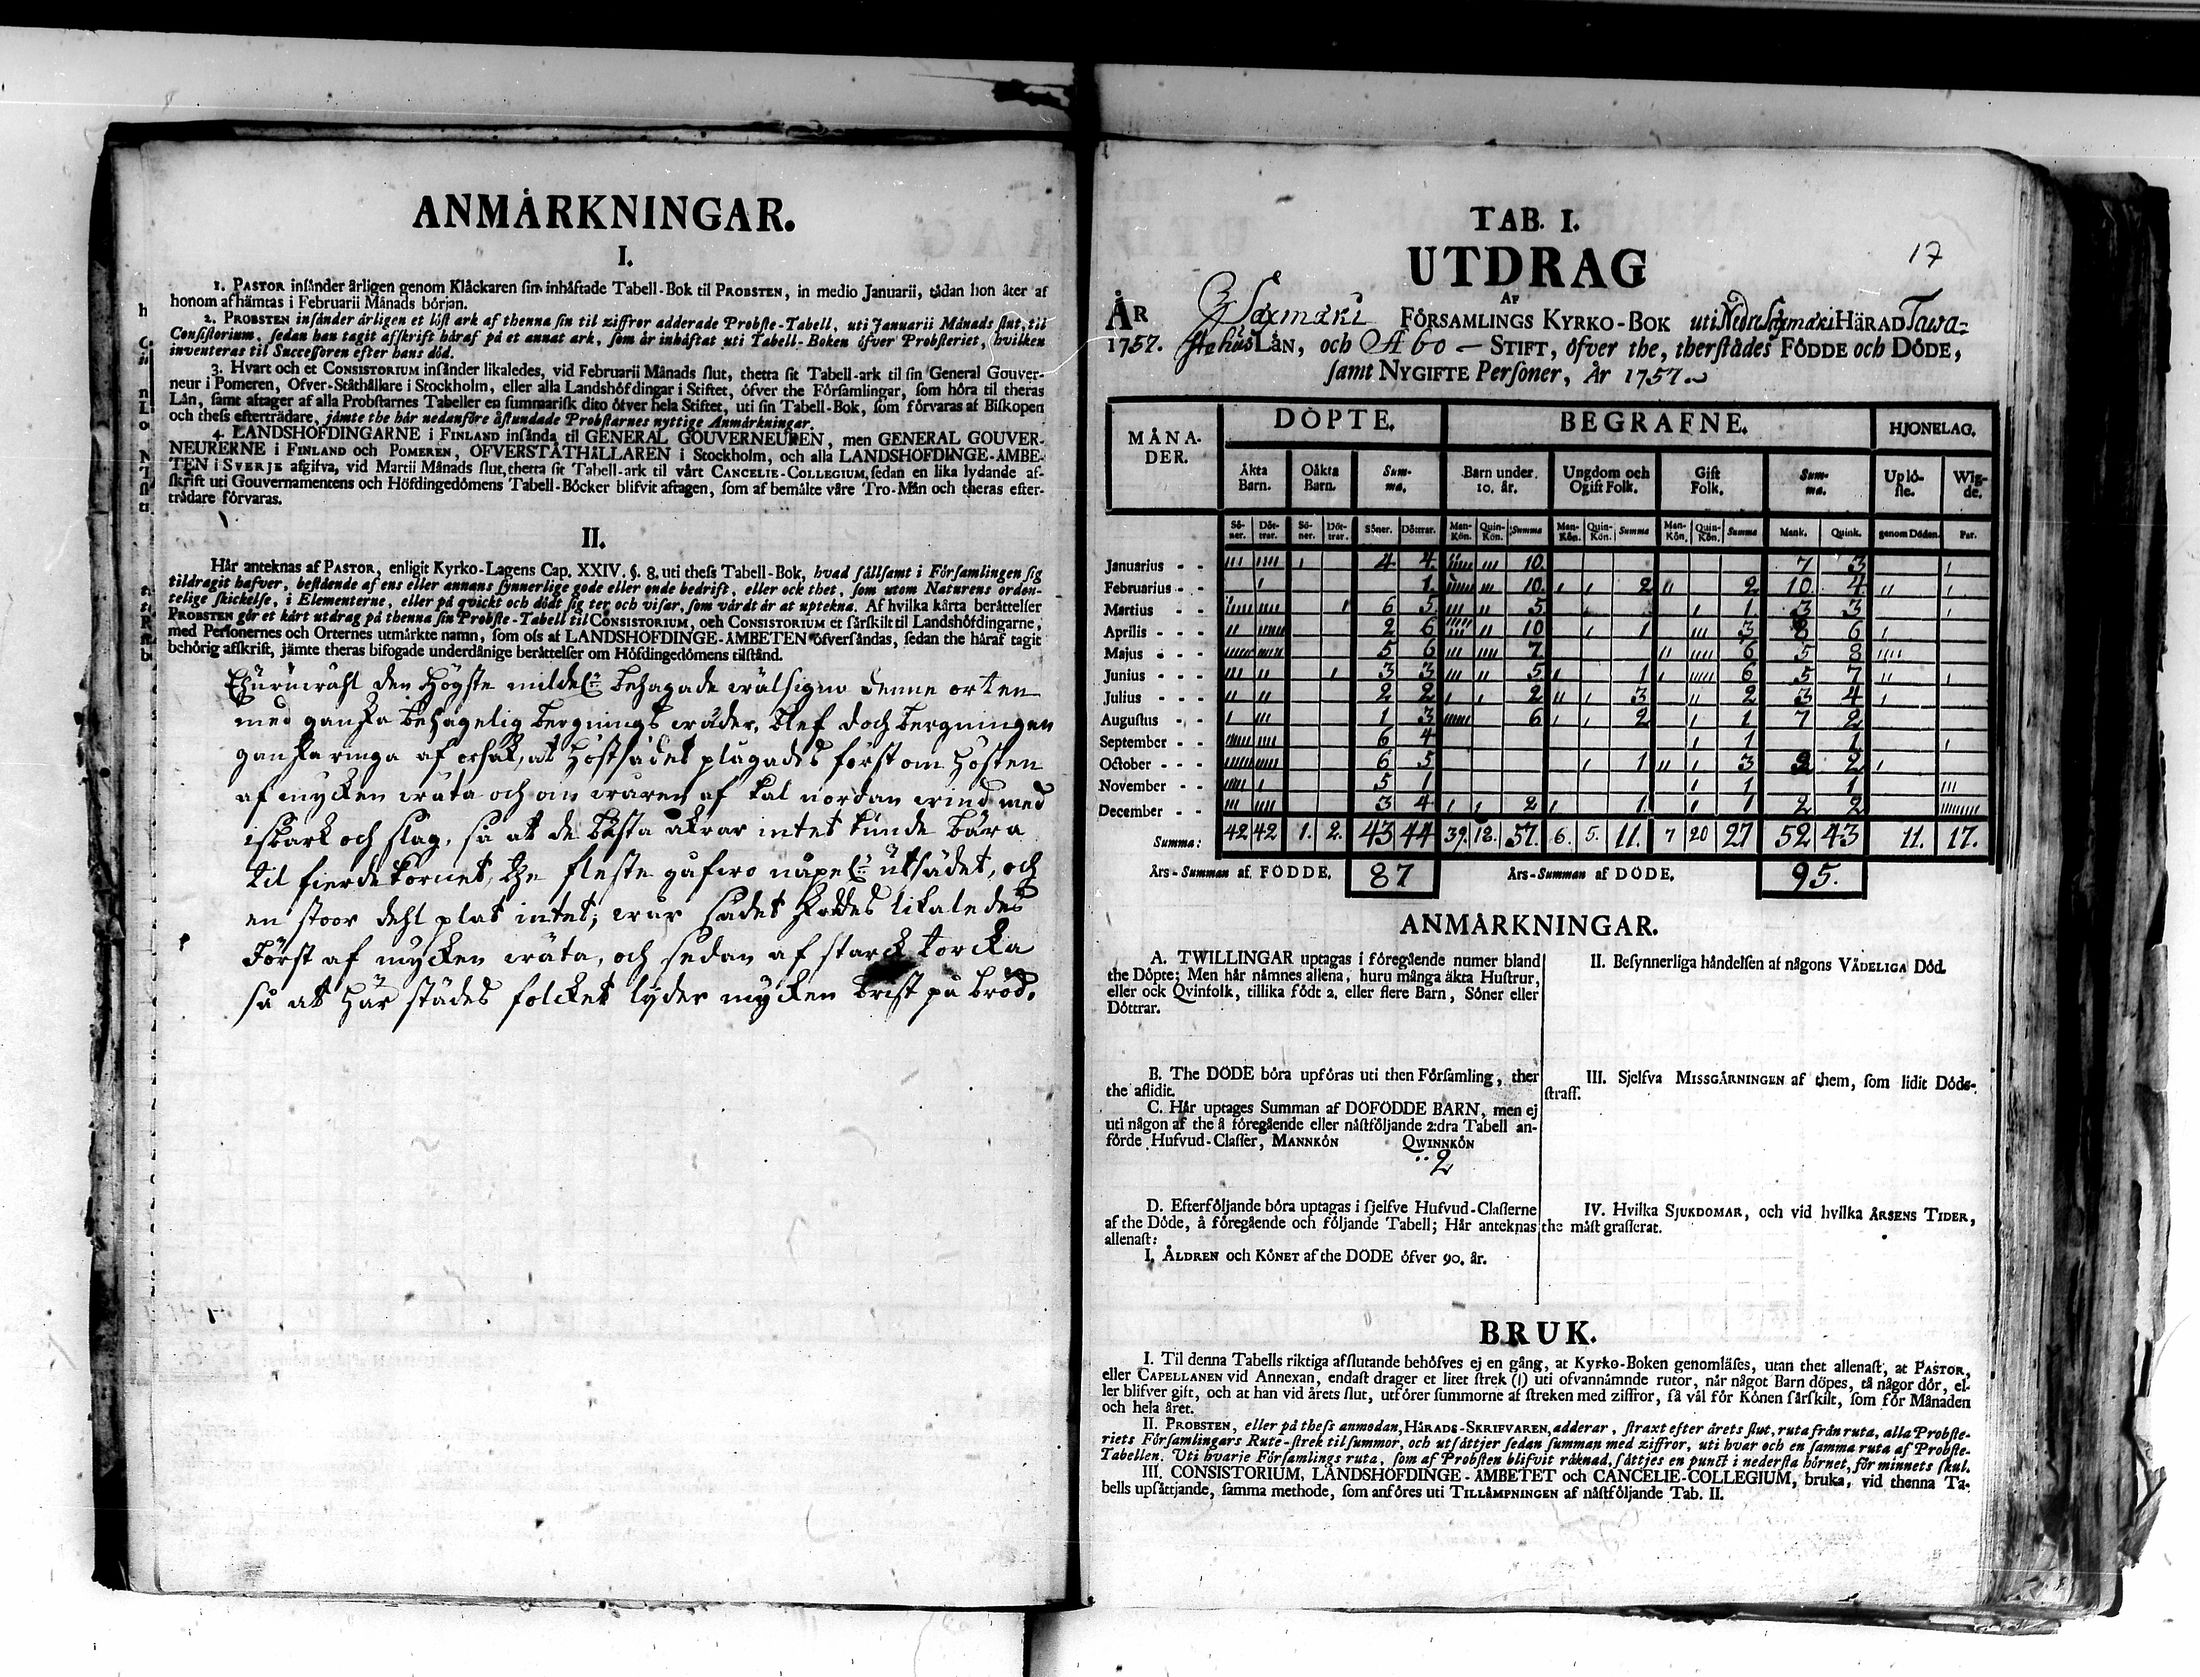 ANMÅRKNINGAR.
I.
1. PASTOR insånder årligen genom Klåckaren sin inhåftade Tabell-Bok til PROBSTEN, in medio Januarii, tådan hon åter af
honom afhåmtas i Februarii Månads början.
2. PROBSTEN insånder årligen et löst ark af thenna sin til ziffror adderade Probste-Tabell, uti Januarii Månads slut, til
Consistorium, sedan han tagit afskrift håraf på et annat ark, som år inhåftat uti Tabell-Boken öfver Probsteriet, hvilken
inventeras til Successoren efter hans död.
3. Hvart och et CONSISTORIUM insånder likaledes, vid Februarii Månads slut, thetta sit Tabell-ark til sin General Gouver-
neur i Pomeren, Ofver-Ståthållare i Stockholm, eller alla Landshöfdingar i Stiftet, öfver the Församlingar, som höra til theras
Lån, samt aftager af alla Probstarnes Tabeller en summarisk dito öfver hela Stiftet, uti sin Tabell-Bok, som förvaras af Biskopen
och thess eftertrådare, jåmte the hår nedanföre åstundade Probstarnes nyttige Anmårkningar.
4. LANDSHÖFDINGARNE i FINLAND insånda til GENERAL GOUVERNEUREN, men GENERAL GOUVER-
NEURERNE i FINLAND och POMEREN, ÖFVERSTÅTHÅLLAREN i Stockholm, och alla LANDSHÖFDINGE-ÅMBE-
TEN i SVERJE afgifva, vid Martii Månads slut, thetta sit Tabell-ark til vårt CANCELIE-COLLEGIUM, sedan en lika lydande af-
skrift uti Gouvernamentens och Höfdingedömens Tabell-Böcker blifvit aftagen, som af bemålte våre Tro-Mån och theras efter-
trådare förvaras.
II.
Hår anteknas af PASTOR, enligit Kyrko-Lagens Cap. XXIV. §. 8. uti thess Tabell-Bok, hvad sållsamt i Församlingen sig
tildragit hafver, bestående af ens eller annans synnerlige gode eller onde bedrift, eller ock thet, som utom Naturens orden-
telige skickelse, i Elementerne, eller på qvickt och dödt sig ter och visar, som vårdt år at uptekna. Af hvilka kårta beråttelser
PROBSTEN gör et kårt utdrag på thenna sin Probste-Tabell til CONSISTORIUM, och CONSISTORIUM et sårskilt til Landshöfdingarne,
med Personernes och Orternes utmårkte namn, som oss af LANDSHÖFDINGE-ÅMBETEN öfversåndas, sedan the håraf tagit
behörig afskrift, jåmte theras bifogade underdånige beråttelser om Höfdingedömens tilstånd.
Ehuruwähl den Högste mildel: behagade wälsigna denne orten
med ganska behagelig bergnings wäder, blef doch bergningen
ganska ringa af orsak, at höstsädet plågades först om hösten
af mycken wäta och om wåren af kal nordan wind med
isbark och slag, så at de bästa åkrar intet kunde bära
til fierde kornet, the fleste gåfwo näpel: utsädet, och
en stoor dehl plat intet; wår sädet skaddes likaledes
först af mycken wäta, och sedan af starck torcka
så at här städes folcket lyder mycken brist på bröd.
17
TAB. I.
UTDRAG
AF
ÅR Saxmäki FÖRSAMLINGS KYRKO-BOK uti Nedre Saxmäki HÄRAD Tawa-
1757. stehus LÅN, och Åbo - STIFT, öfver the, therstådes FÖDDE och DÖDE,
samt NYGIFTE Personer, År 1757.
MÅNA-DER. DÖPTE. BEGRAFNE. HJONELAG.
Åkta Barn. Oåkta Barn. Sum-ma. Barn under 10. år. Ungdom och Ogift Folk. Gift Folk. Sum-ma. Uplö-ste. Wig-de.
Sö-ner. Döt-trar. Sö-ner. Döt-trar. Söner. Döttrar. Man-Kön. Quin-Kön. Summa Man-Kön. Quin-Kön. Summa Man-Kön. Quin-Kön. Summa Mank. Quink. genom Döden. Par.
Januarius - - 4 4 10 7 3
Februarius - - 1 10 2 2 10 4
Martius - - - 6 5 5 1 3 3
Aprilis - - - 2 6 10 1 3 8 6
Majus - - - 5 6 7 6 5 8
Junius - - - 3 3 5 1 6 5 7
Julius - - - 2 2 2 3 2 3 4
Augustus - - 1 3 6 2 1 7 2
September - - 6 4 1 1
October - - - 6 5 1 3 2 2
November - - 5 1 1 1
December - - 3 4 2 1 1 2 2
Summa: 42 42 1. 2. 43 44 39. 18. 57. 6. 5. 11. 7 20 27 52 43 11. 17.
Års-Summan af FÖDDE. 87 Års-Summan af DÖDE. 95.
ANMÅRKNINGAR.
A. TWILLINGAR uptagas i föregående numer bland
the Döpte; Men hår nåmnes allena, huru många åkta Hustrur,
eller ock Qvinfolk, tillika födt 2. eller flere Barn, Söner eller
Döttrar.
B. The DÖDE böra upföras uti then Församling, ther
the aflidit.
C. Hår uptages Summan af DÖFÖDDE BARN, men ej
uti någon af the å föregående eller nåstföljande 2:dra Tabell an-
förde Hufvud-Classer, MANNKÖN QWINNKÖN
2
D. Efterföljande böra uptagas i sjelfve Hufvud-Classerne
af the Döde, å föregående och följande Tabell; Hår anteknas
allenast:
I. ÅLDREN och KÖNET af the DÖDE öfver 90. år.
II. Besynnerliga håndelsen af någons VÅDELIGA Död.
III. Sjelfva MISSGÅRNINGEN af them, som lidit Döds-
straff.
IV. Hvilka SJUKDOMAR, och vid hvilka ÅRSENS TIDER,
the måst grasserat.
BRUK.
I. Til denna Tabells riktiga afslutande behöfves ej en gång, at Kyrko-Boken genomlåses, utan thet allenast, at PASTOR,
eller CAPELLANEN vid Annexan, endast drager et litet strek (/) uti ofvannåmnde rutor, når något Barn döpes, tå någor dör, el-
ler blifver gift, och at han vid årets slut, utförer summorne af streken med ziffror, så vål för Könen sårskilt, som för Månaden
och hela året.
II. PROBSTEN, eller på thess anmodan, HÅRADS-SKRIFVAREN, adderar, straxt efter årets slut, ruta från ruta, alla Probste-
riets Församlingars Rute-strek til summor, och utsåttjer sedan summan med ziffror, uti hvar och en samma ruta af Probste-
Tabellen. Uti hvarje Församlings ruta, som af Probsten blifvit råknad, såttjes en punct i nedersta hörnet, för minnets skul.
III. CONSISTORIUM, LANDSHÖFDINGE-ÅMBETET och CANCELIE-COLLEGIUM, bruka, vid thenna Ta-
bells upsåttjande, samma methode, som anföres uti TILLÅMPNINGEN af nåstföljande Tab. II.